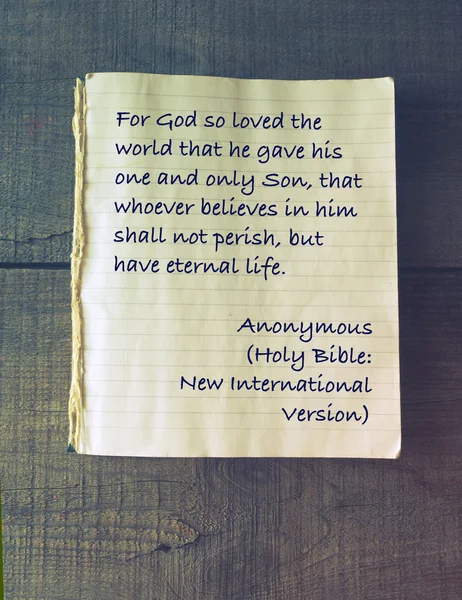 For God so loved the
world that he gave his
one and only Son, that
whoever believes in him
shall not perish, but
have eternal life.
Anonymous
(Holy Bible:
New International
Version)